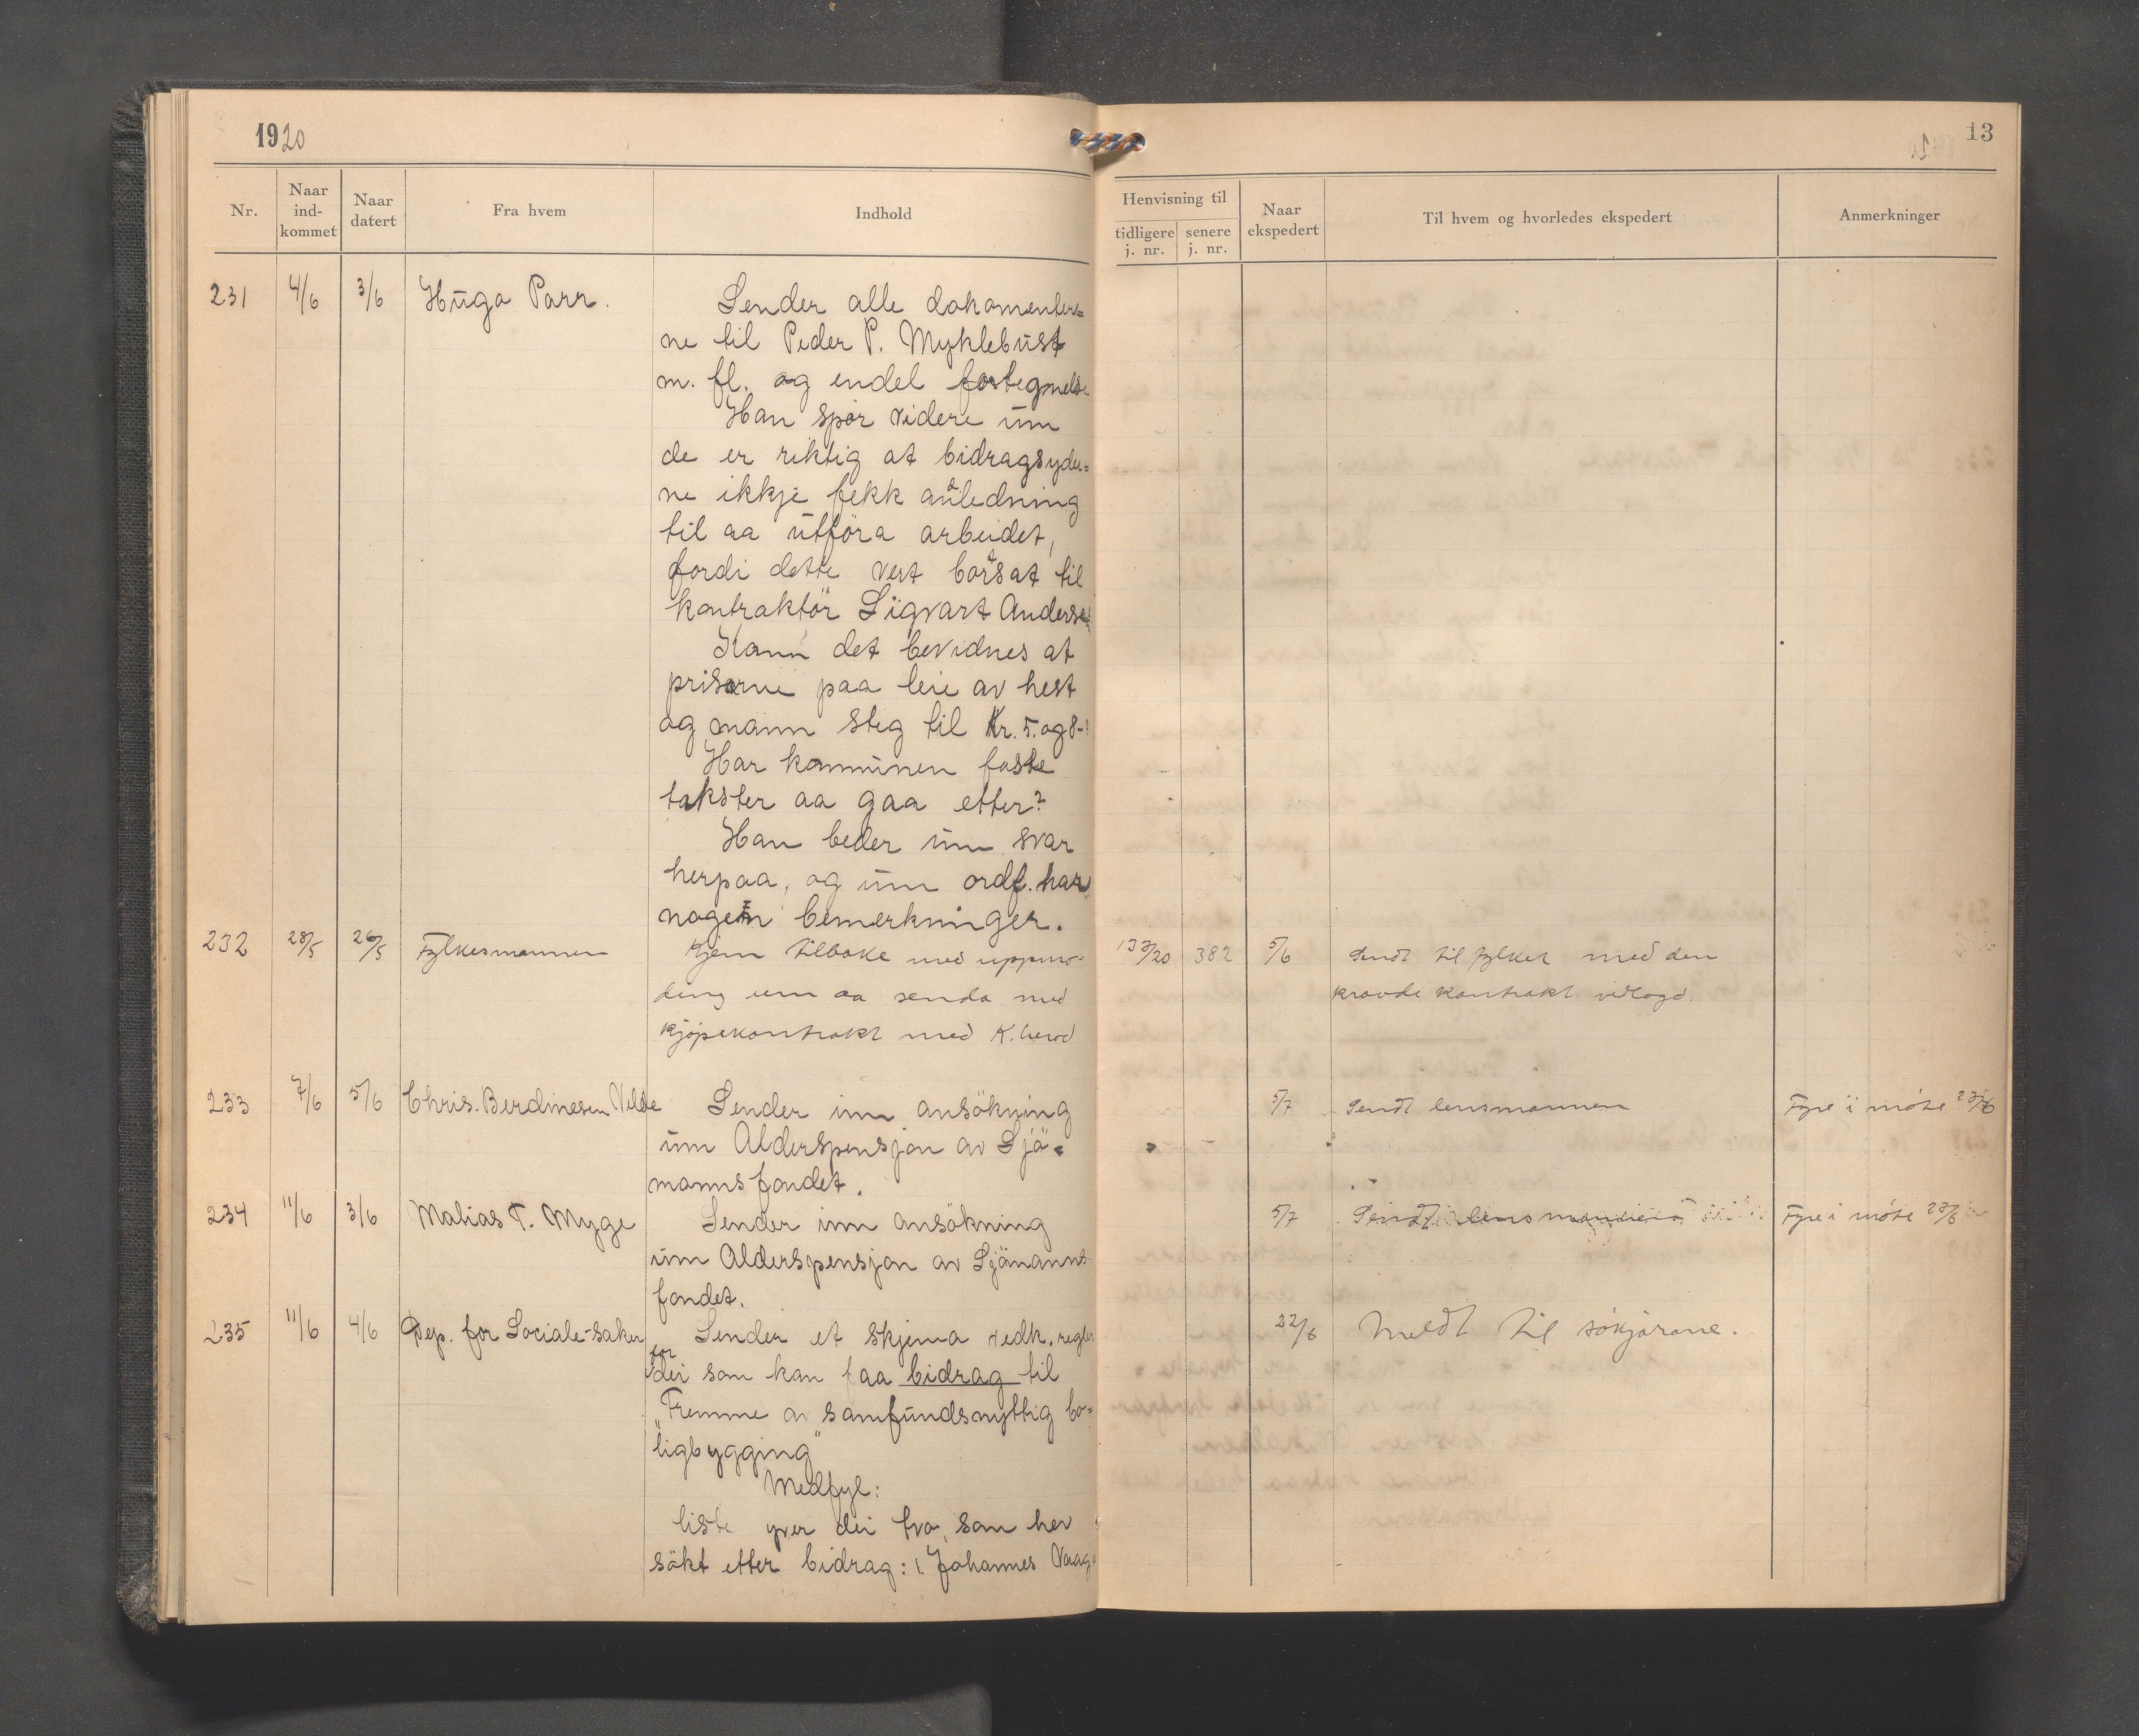 1920
13
Nr.
Naar ind-kommet
Naar datert
Fra hvem
Indhold
Henvisning til
tidligere j. nr.
senere j. nr.
Naar ekspedert
Til hvem og hvorledes ekspedert
Anmerkninger
231 4/6 3/6 Hugo Parr. Sender alle dokomentere=
ne til Peder P. Myklebust
m. fl. og endel
Han spör videre um
de er riktig at bidragsyder=
ne ikkje fekk anledning
til aa utföra arbeidet,
fordi dette vert bortsat til
kontraktör Sigvart Andersen
Kann det bevidnes at
priserne paa leie av hest
og mann steg til Kr. 5. og 8-?
Har kommunen faste
takster aa gaa etter?
Han beder um svar
herpaa, og um ordf. har
nogen bemerkninger.
232 28/5 26/5 Fylkesmannen Kjem tilbake med uppmo-
ding um aa senda med
kjøpekontrakt med K.
133/20 382 5/6 Sendt til fylket med den
kravde kontrakt vedlagd.
233 7/6 5/6 Chris. Berdinesen Velde Sender inn ansökning
um Alderspensjon av Sjö=
mannsfondet.
5/7 Sendt lensmannen Fyre i møte 23/6
234 11/6 3/6 Matias T. Myge Sender inn ansökning
um Alderspensjon av Sjömanns
fondet.
5/7 Sendt lensmannen Fyre i møte 23/6
235 11/6 4/6 Dep. for Sociale-saker Sender et skjema vedk. regler
for
dei som kan faa bidrag til
"Fremme av samfundsnyttig bo=
ligbygging"
Medfyl:
liste yver dei tvo, som hev
sökt etter bidrag: 1. Johannes Vaage
22/6 Meldt til søkjarane.